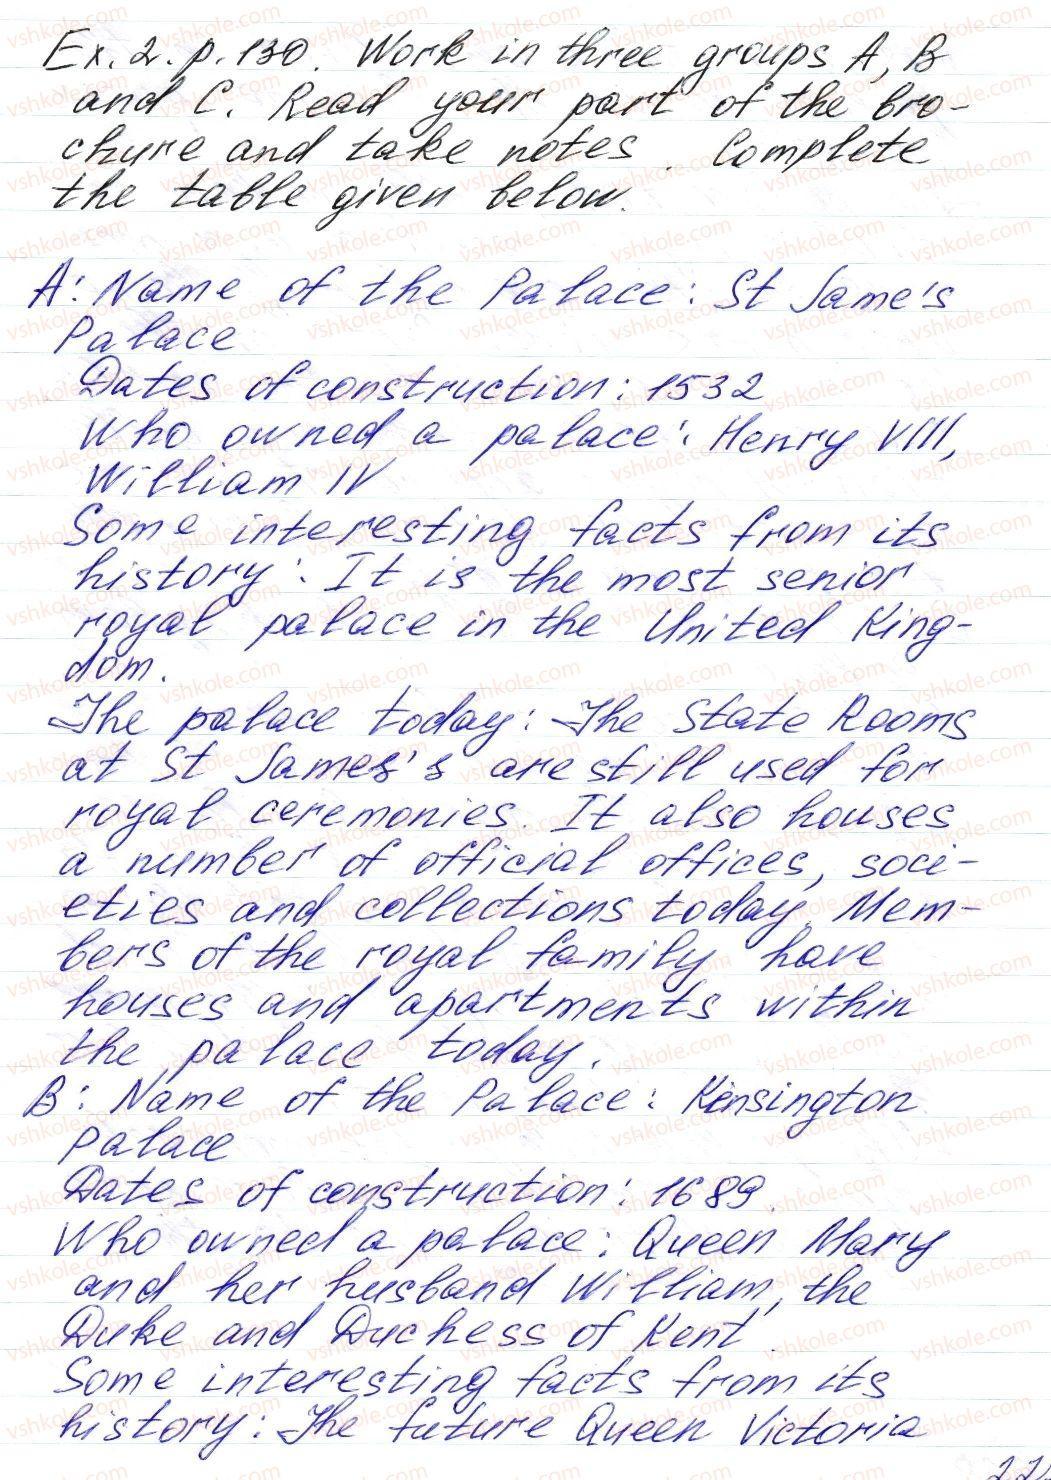 Ex. 2. p. 130. Work in three groups A, B
and C. Read your part of the bro-
chure and take notes. Complete
the table given below.
A: Name of the Palace: St Jame's
Palace
Dates of construction: 1532
Who owned a palace: Henry VIII,
William IV
Some interesting facts from its
history: It is the most senior
royal palace in the United King-
dom.
The palace today: The State Rooms
at St James's are still used for
royal ceremonies. It also houses
a number of official offices, soci-
eties and collections today. Mem-
bers of the royal family have
houses and apartments within
the palace today.
B: Name of the Palace: Kensington
Palace
Dates of construction: 1689.
Who owned a palace: Queen Mary
and her husband William, the
Duke and Duchess of Kent
Some interesting facts from its
history: The future Queen Victoria